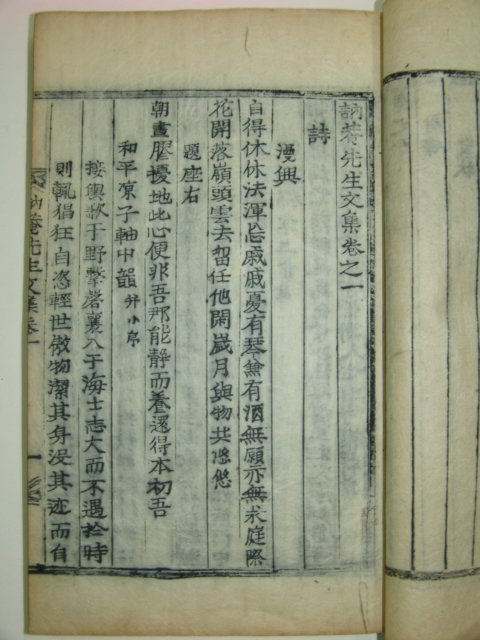 訥菴先生文集卷之一
詩
漫興
自得休休法渾忘戚戚憂有琴兼有酒無願亦無求庭際
花開落嶺頭雲去留任他閑歲月與物共悠悠
題座右
朝晝膠擾地此心便非吾那能靜而養還得本初吾
和平凉子軸中韻 幷小序
接輿歌于野擊磬襄入于海士志大而不遇於時
則輒猖狂自恣輕世傲物潔其身浸其迹而自
訥菴先生文集卷一
一